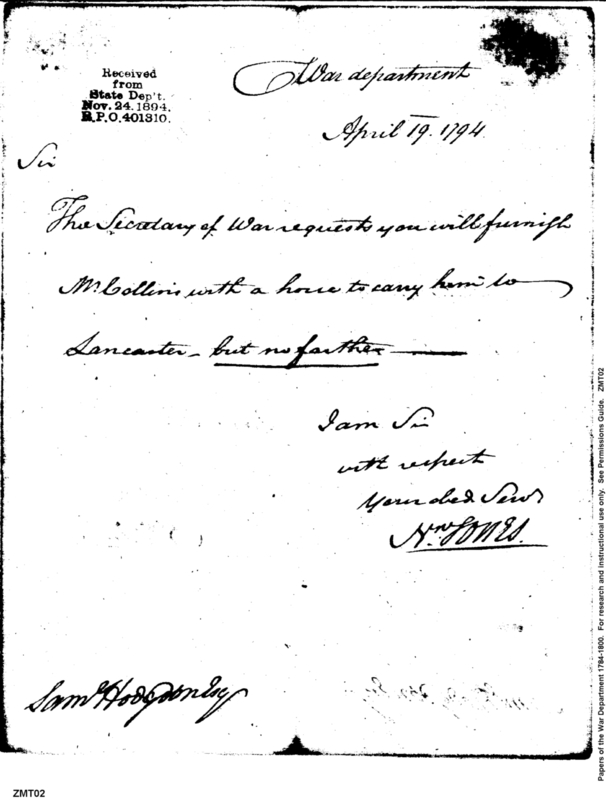 Received
from
State Dep't.
Nov. 24. 1894.
R.P.O. 401310.
War department
April 19. 1794
Sir
The Secretary of War requests you will furnish
Mr. Collins with a horse to carry him to
Lancaster - but no farther
I am Sir
with respect
Your obed Servt
Nn JONES.
Saml Hodgdon Esqr
Papers of the War Department 1784-1800. For research and instructional use only. See Permissions Guide. ZMT02
ZMT02